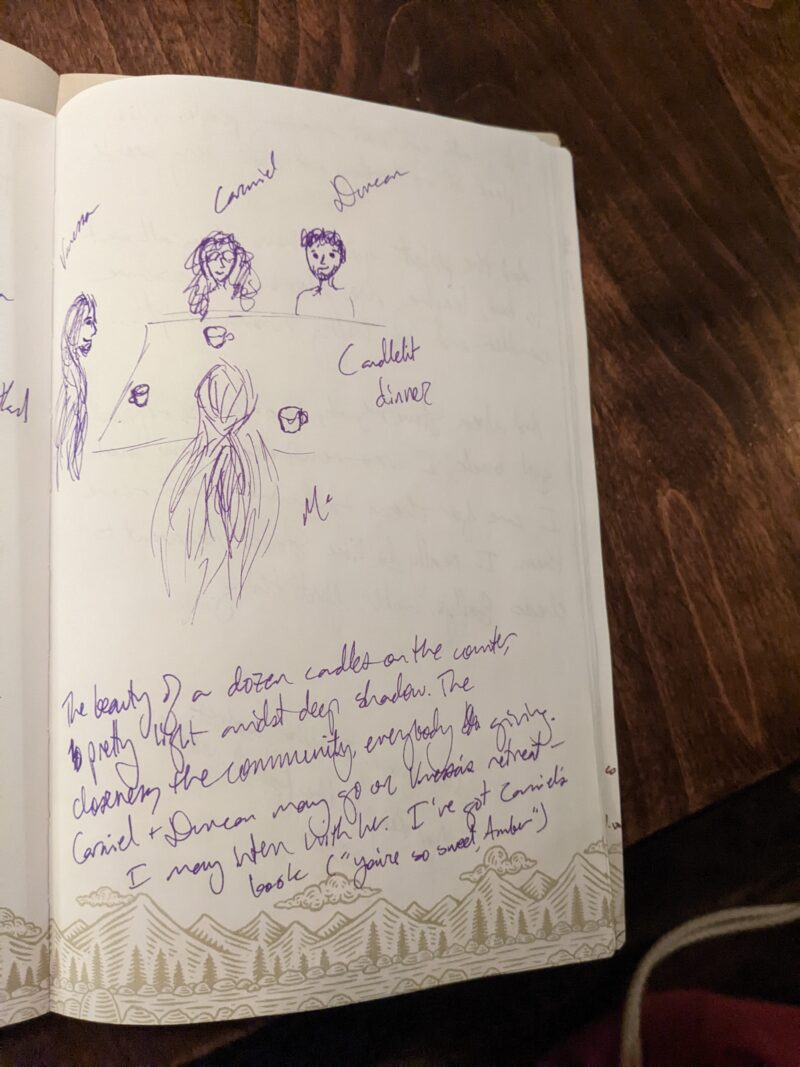 Vanessa
Carmiel
Duncan
Candlelit
dinner
Me
The beauty of a dozen candles on the counter,
pretty light amidst deep shadow. The
closeness, the community, everybody giving.
Carmiel + Duncan may go on Vanessa's retreat –
I may intern with her. I've got Carmiel's
book ("you're so sweet, Amber")